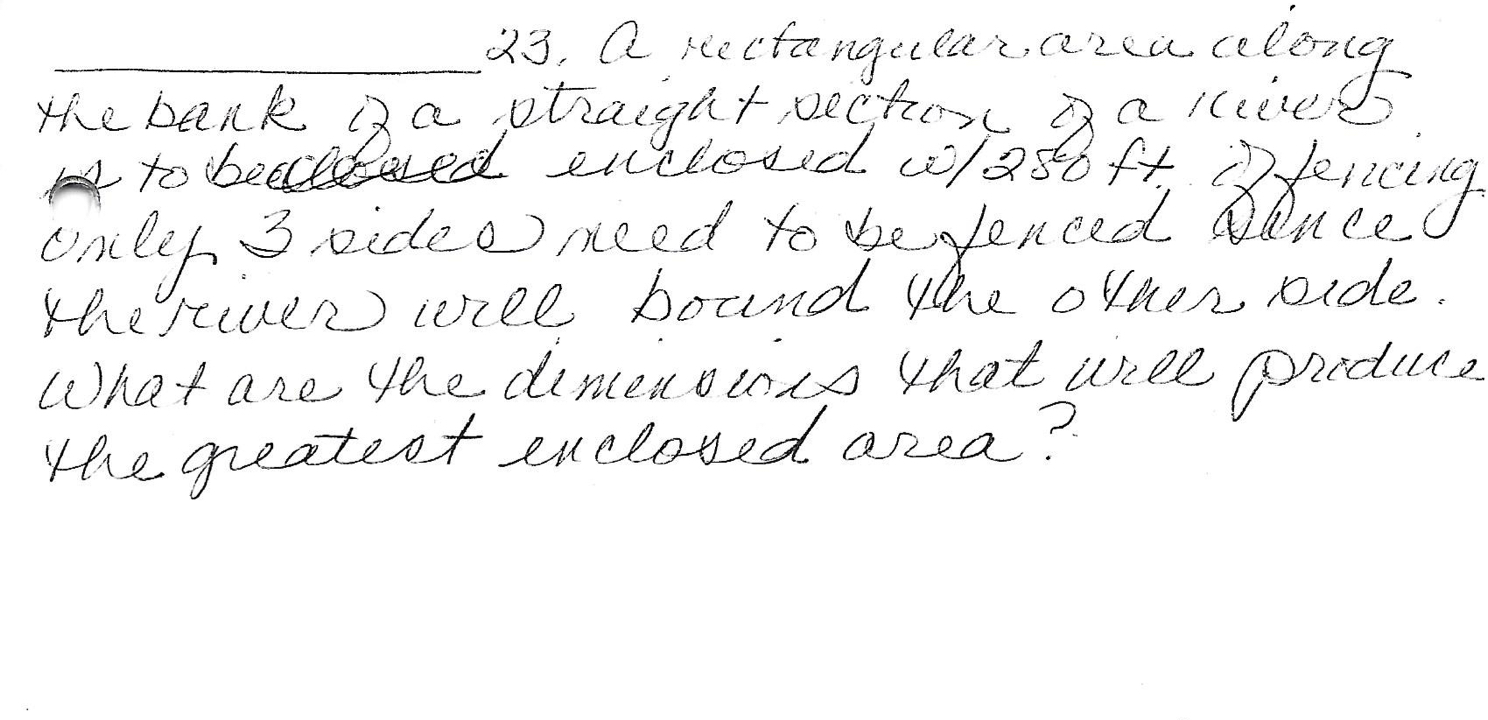 23. A rectangular area along
the bank of a straight section of a river
is to be enclosed w/ 280 ft. of fencing
only 3 sides need to be fenced since
the river will bound the other side.
What are the dimensions that will produce
the greatest enclosed area?